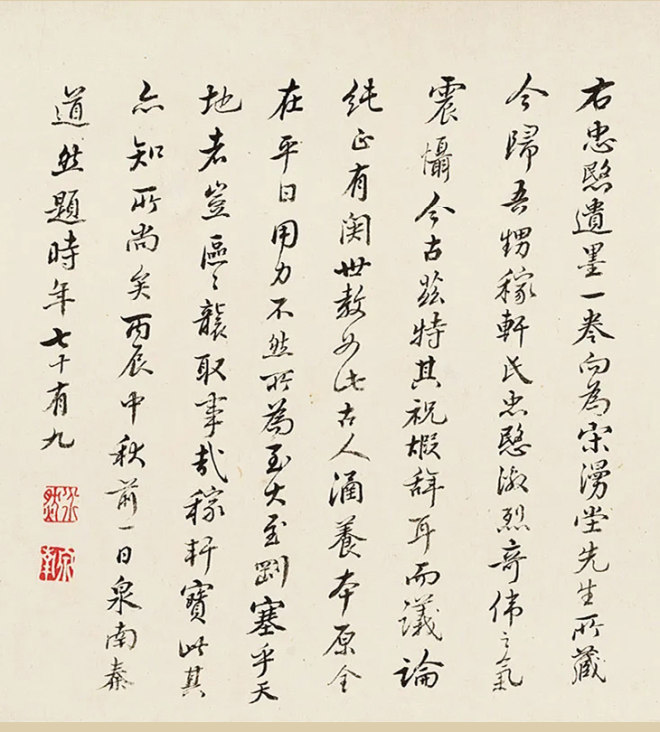 右忠愍遺墨一卷向為宋漫堂先生所藏
今歸吾甥稼軒氏忠愍激烈奇偉之氣
震懾今古茲特其祝嘏辭耳而議論
純正有関世教如此古人涵養本原全
在平日用力不然所為至大至剛塞乎天
地者豈區〻襲取事哉稼軒寶此其
亦知所尚矣丙辰中秋前一日泉南秦
道然題時年七十有九